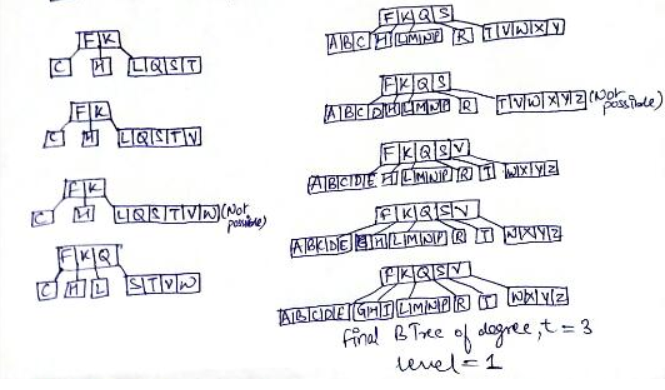 F K
C H L Q S T
F K
C H L Q S T V
F K
C H L Q S T V W (Not possible)
F K Q
C H L S T V W
F K Q S
A B C H L M N P R T V W X Y
F K Q S
A B C D H L M N P R T V W X Y Z (Not possible)
F K Q S V
A B C D E H L M N P R T W X Y Z
F K Q S V
A B C D E H L M N P R T W X Y Z
F K Q S V
A B C D E G H I L M N P R T W X Y Z
final B Tree of degree, t = 3
level = 1